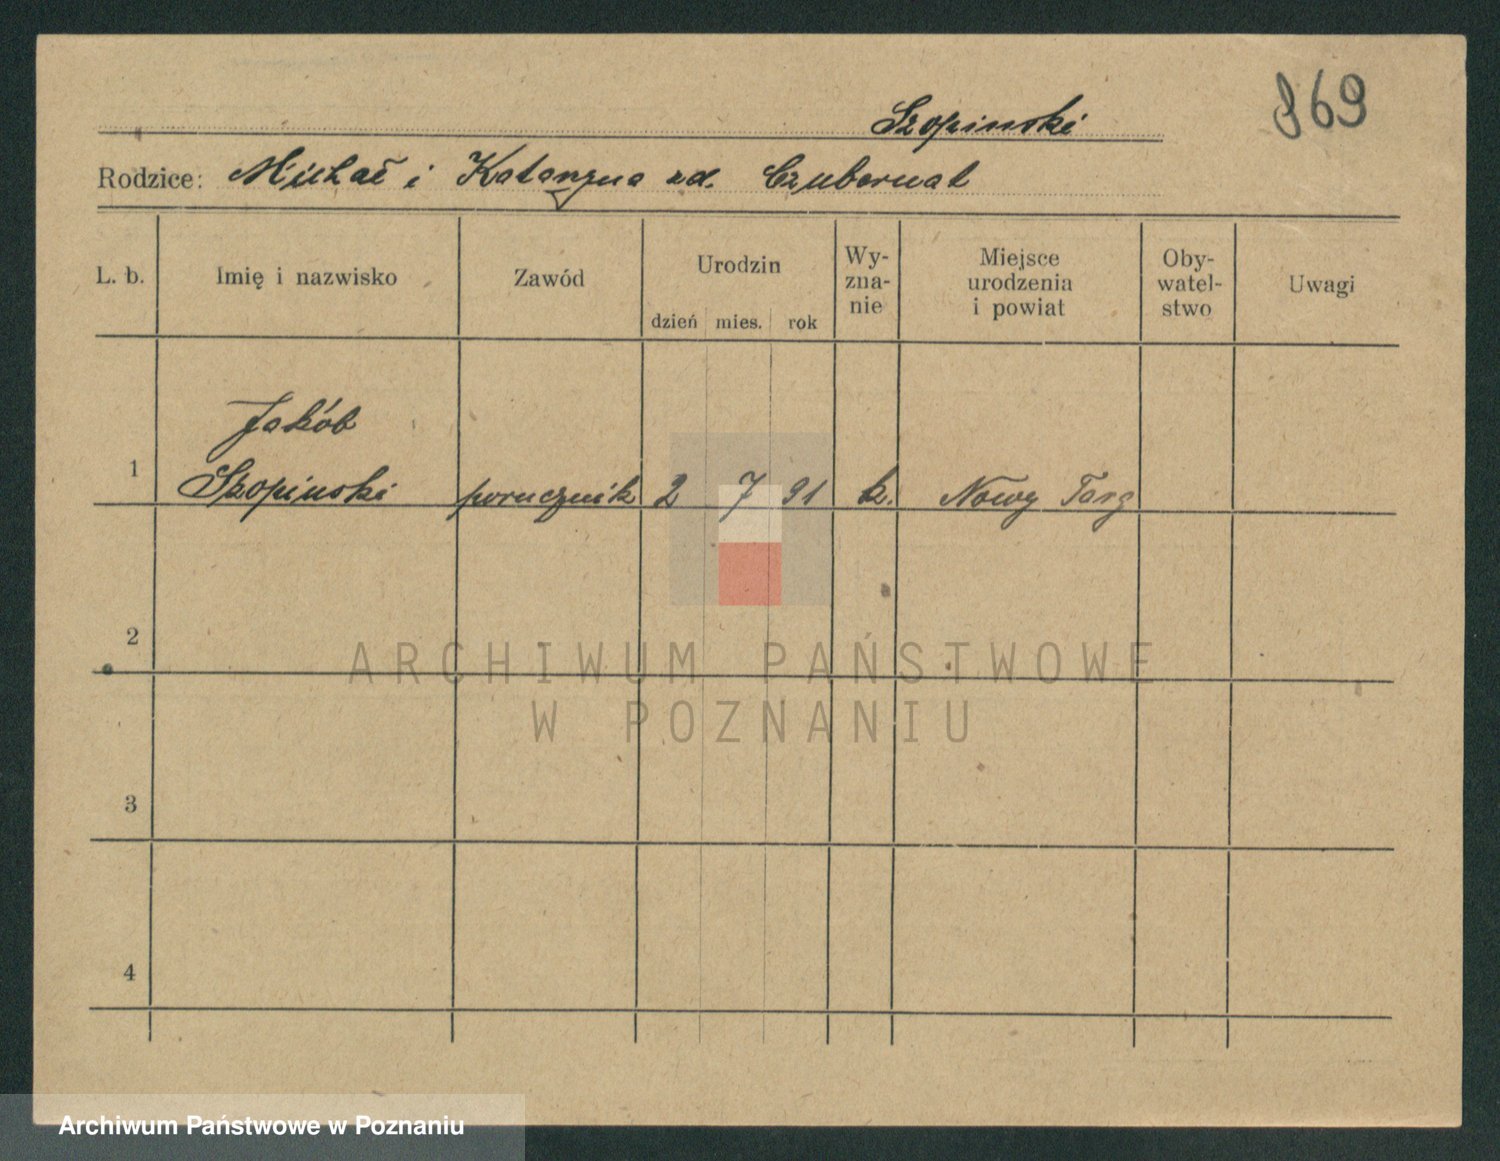 869
Szopinski
Rodzice: Michał i Katarzyna zd. Czubernat
L. b.
Imię i nazwisko
Zawód
Urodzin
dzień mies. rok
Wy-
zna-
nie
Miejsce
urodzenia
i powiat
Oby-
watel-
stwo
Uwagi
Jakób
1 Szopinski porucznik 2 7 91 k. Nowy Targ
2
ARCHIWUM PAŃSTWOWE
W POZNANIU
3
4
Archiwum Państwowe w Poznaniu